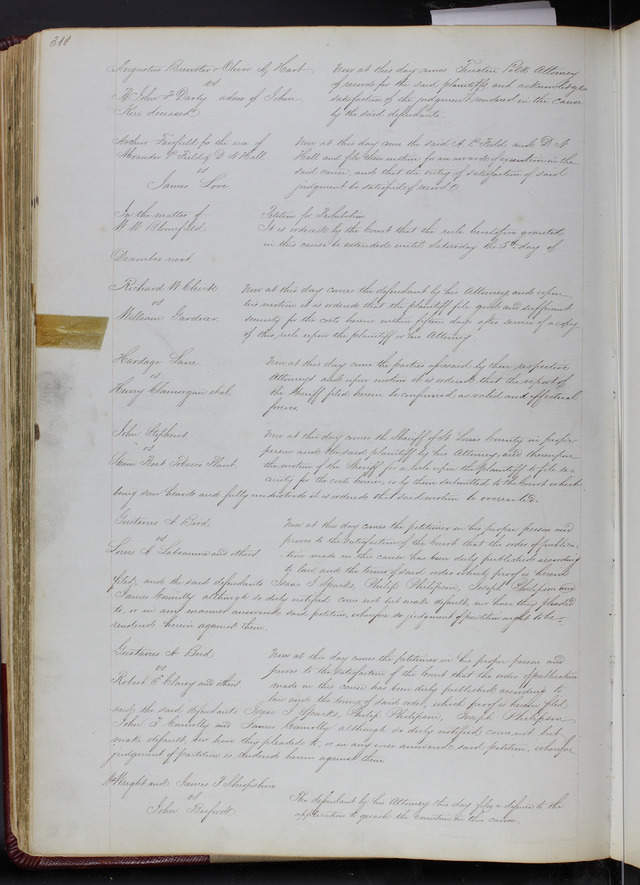 388
Augustus Brewster & Oliver G Hart
vs
John F Darby admr of John
Kerr deceased
Now at this day comes Trusten Polk Attorney
of record for the said plaintiffs and acknowledges
satisfaction of the judgment rendered in the cause
by the said defendants.
Arthur Fairfield for the use of
Alexander P Field & D N Hall
vs
James Love
Now at this day come the said A. P Field and D N
Hall and file their motion for an award of execution in the
said cause, and that the entry of satisfaction of said
judgment be satisfied of record
In the matter of
W W Blumfield
Petition for
It is ordered by the Court that the rule heretofore granted
in this cause be extended until Saturday the 5th day of
December next
Richard W Clark
vs
William Gardner
Now at this day comes the defendant by his Attorney and upon
his motion it is ordered that the plaintiff file good and sufficient
security for the costs herein within fifteen days after service of a copy
of this rule upon the plaintiff or his Attorney
Hardage Lane
vs
Henry Clamorgan et al.
Now at this day come the parties aforesaid by their respective
Attorneys and upon motion it is ordered that the report of
the Sheriff filed herein be confirmed as valid and effectual
forever.
John Stephens
vs
Steam Boat Tobacco Plant
Now at this day comes the Sheriff of St Louis County in proper
person and the said plaintiff by his Attorney, and thereupon
the motion of the Sheriff for a rule upon the plaintiff to file se-
curity for the costs herein, is by them submitted to the Court which
being seen heard and fully understood it is ordered that said motion be overruled.
Gustavus A Bird
vs
Louis A Labeaume and others
Now at this day comes the petitioner in his proper person and
proves to the satisfaction of the Court that the order of publica-
tion made in this cause has been duly published according
to law and the terms of said order which proof is herein
filed, and the said defendants Isaac J Sparks, Philip Philipson, Joseph Philipson and
James Connolly although so duly notified come not but make default, nor have they pleaded
to, or in any manner answered said petition, wherefore judgment of partition ought to be
rendered herein against them.
Gustavus A Bird
vs
Robert E Clary and others
Now at this day comes the petitioner in his proper person and
proves to the satisfaction of the Court that the order of publication
made in this cause has been duly published according to
law and the terms of said order, which proof is herein filed
and the said defendants Isaac J Sparks, Philip Philipson, Joseph Philipson
John F Connolly and James Connolly although so duly notified come not but
make default, nor have they pleaded to, or in any wise answered said petition, wherefore
judgment of partition is rendered herein against them
Wright and James F Shropshire
vs
John
The defendant by his Attorney this day files a
application to quash the execution in this cause